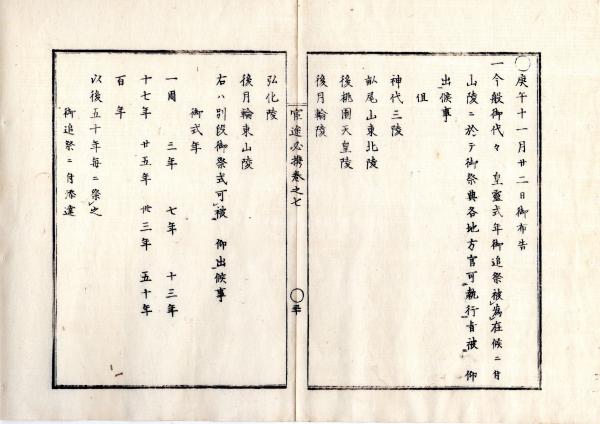 〇庚午十一月廿二日御布告
一今般御代々 皇霊式年御追祭被為在候ニ付
山陵ニ於テ御祭典各地方官可執行旨被 仰
出候事
但
神代三陵
畝尾山東北陵
後桃園天皇陵
後月輪陵
官途必携巻之七
〇三十
弘化陵
後月輪東山陵
右ハ別段御祭式可被 仰出候事
御式年
一周 三年 七年 十三年
十七年 廿五年 卅三年 五十年
百年
以後五十年毎ニ祭之
御追祭ニ付添達